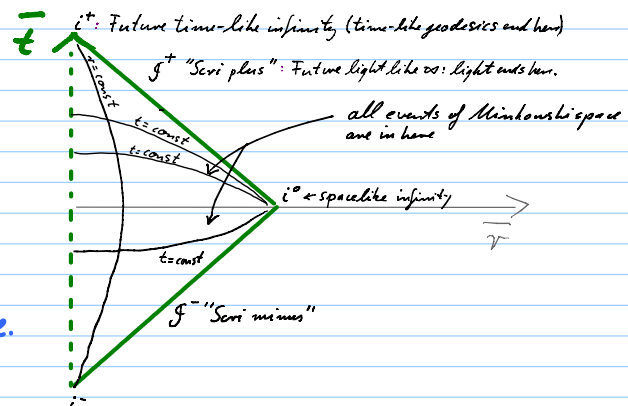 t̄
i⁺: Future time-like infinity (time-like geodesics end here)
𝒥⁺ "Scri plus": Future light like ∞: light ends here.
r=const
all events of Minkowski space
are in here
t=const
t=const
i⁰ ← spacelike infinity
r̄
t=const
𝒥⁻ "Scri minus"
e.
i⁻